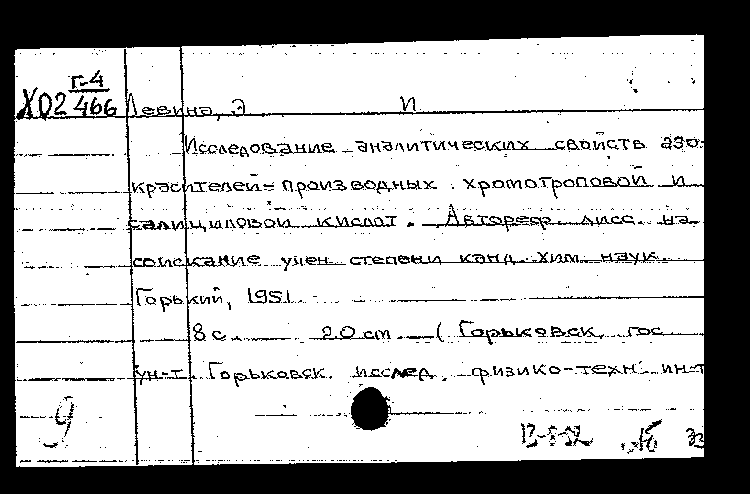 Г-4
Х02 466 Левина, Э И
Исследование аналитических свойств азо-
красителей = производных хромотроповой и
салициловой кислот. Автореф. дисс. на
соискание учен степени канд. хим. наук.
Горький, 1951.
8 с. 20 cm. (Горьковск. гос
ун-т. Горьковск. исслед. физико-техн. ин-т
9